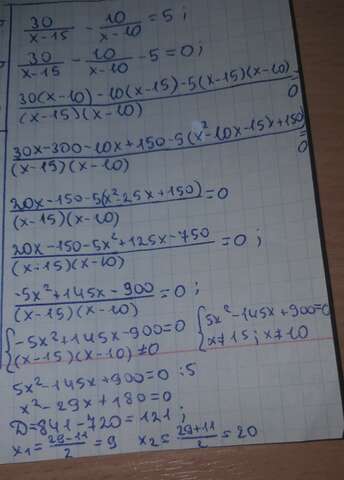 30/(x-15) - 10/(x-10) = 5 ;
30/(x-15) - 10/(x-10) - 5 = 0 ;
(30(x-10) - 10(x-15) - 5(x-15)(x-10))/((x-15)(x-10)) = 0
(30x-300-10x+150-5(x²-10x-15x+150))/((x-15)(x-10)) = 0
(20x-150-5(x²-25x+150))/((x-15)(x-10)) = 0
(20x-150-5x²+125x-750)/((x-15)(x-10)) = 0 ;
(-5x²+145x-900)/((x-15)(x-10)) = 0 ;
{ -5x²+145x-900=0 { 5x²-145x+900=0
(x-15)(x-10)≠0 x≠15 ; x≠10
5x²-145x+900=0 :5
x²-29x+180=0 ;
D=841-720=121 ;
x₁=(29-11)/2=9 x₂=(29+11)/2=20